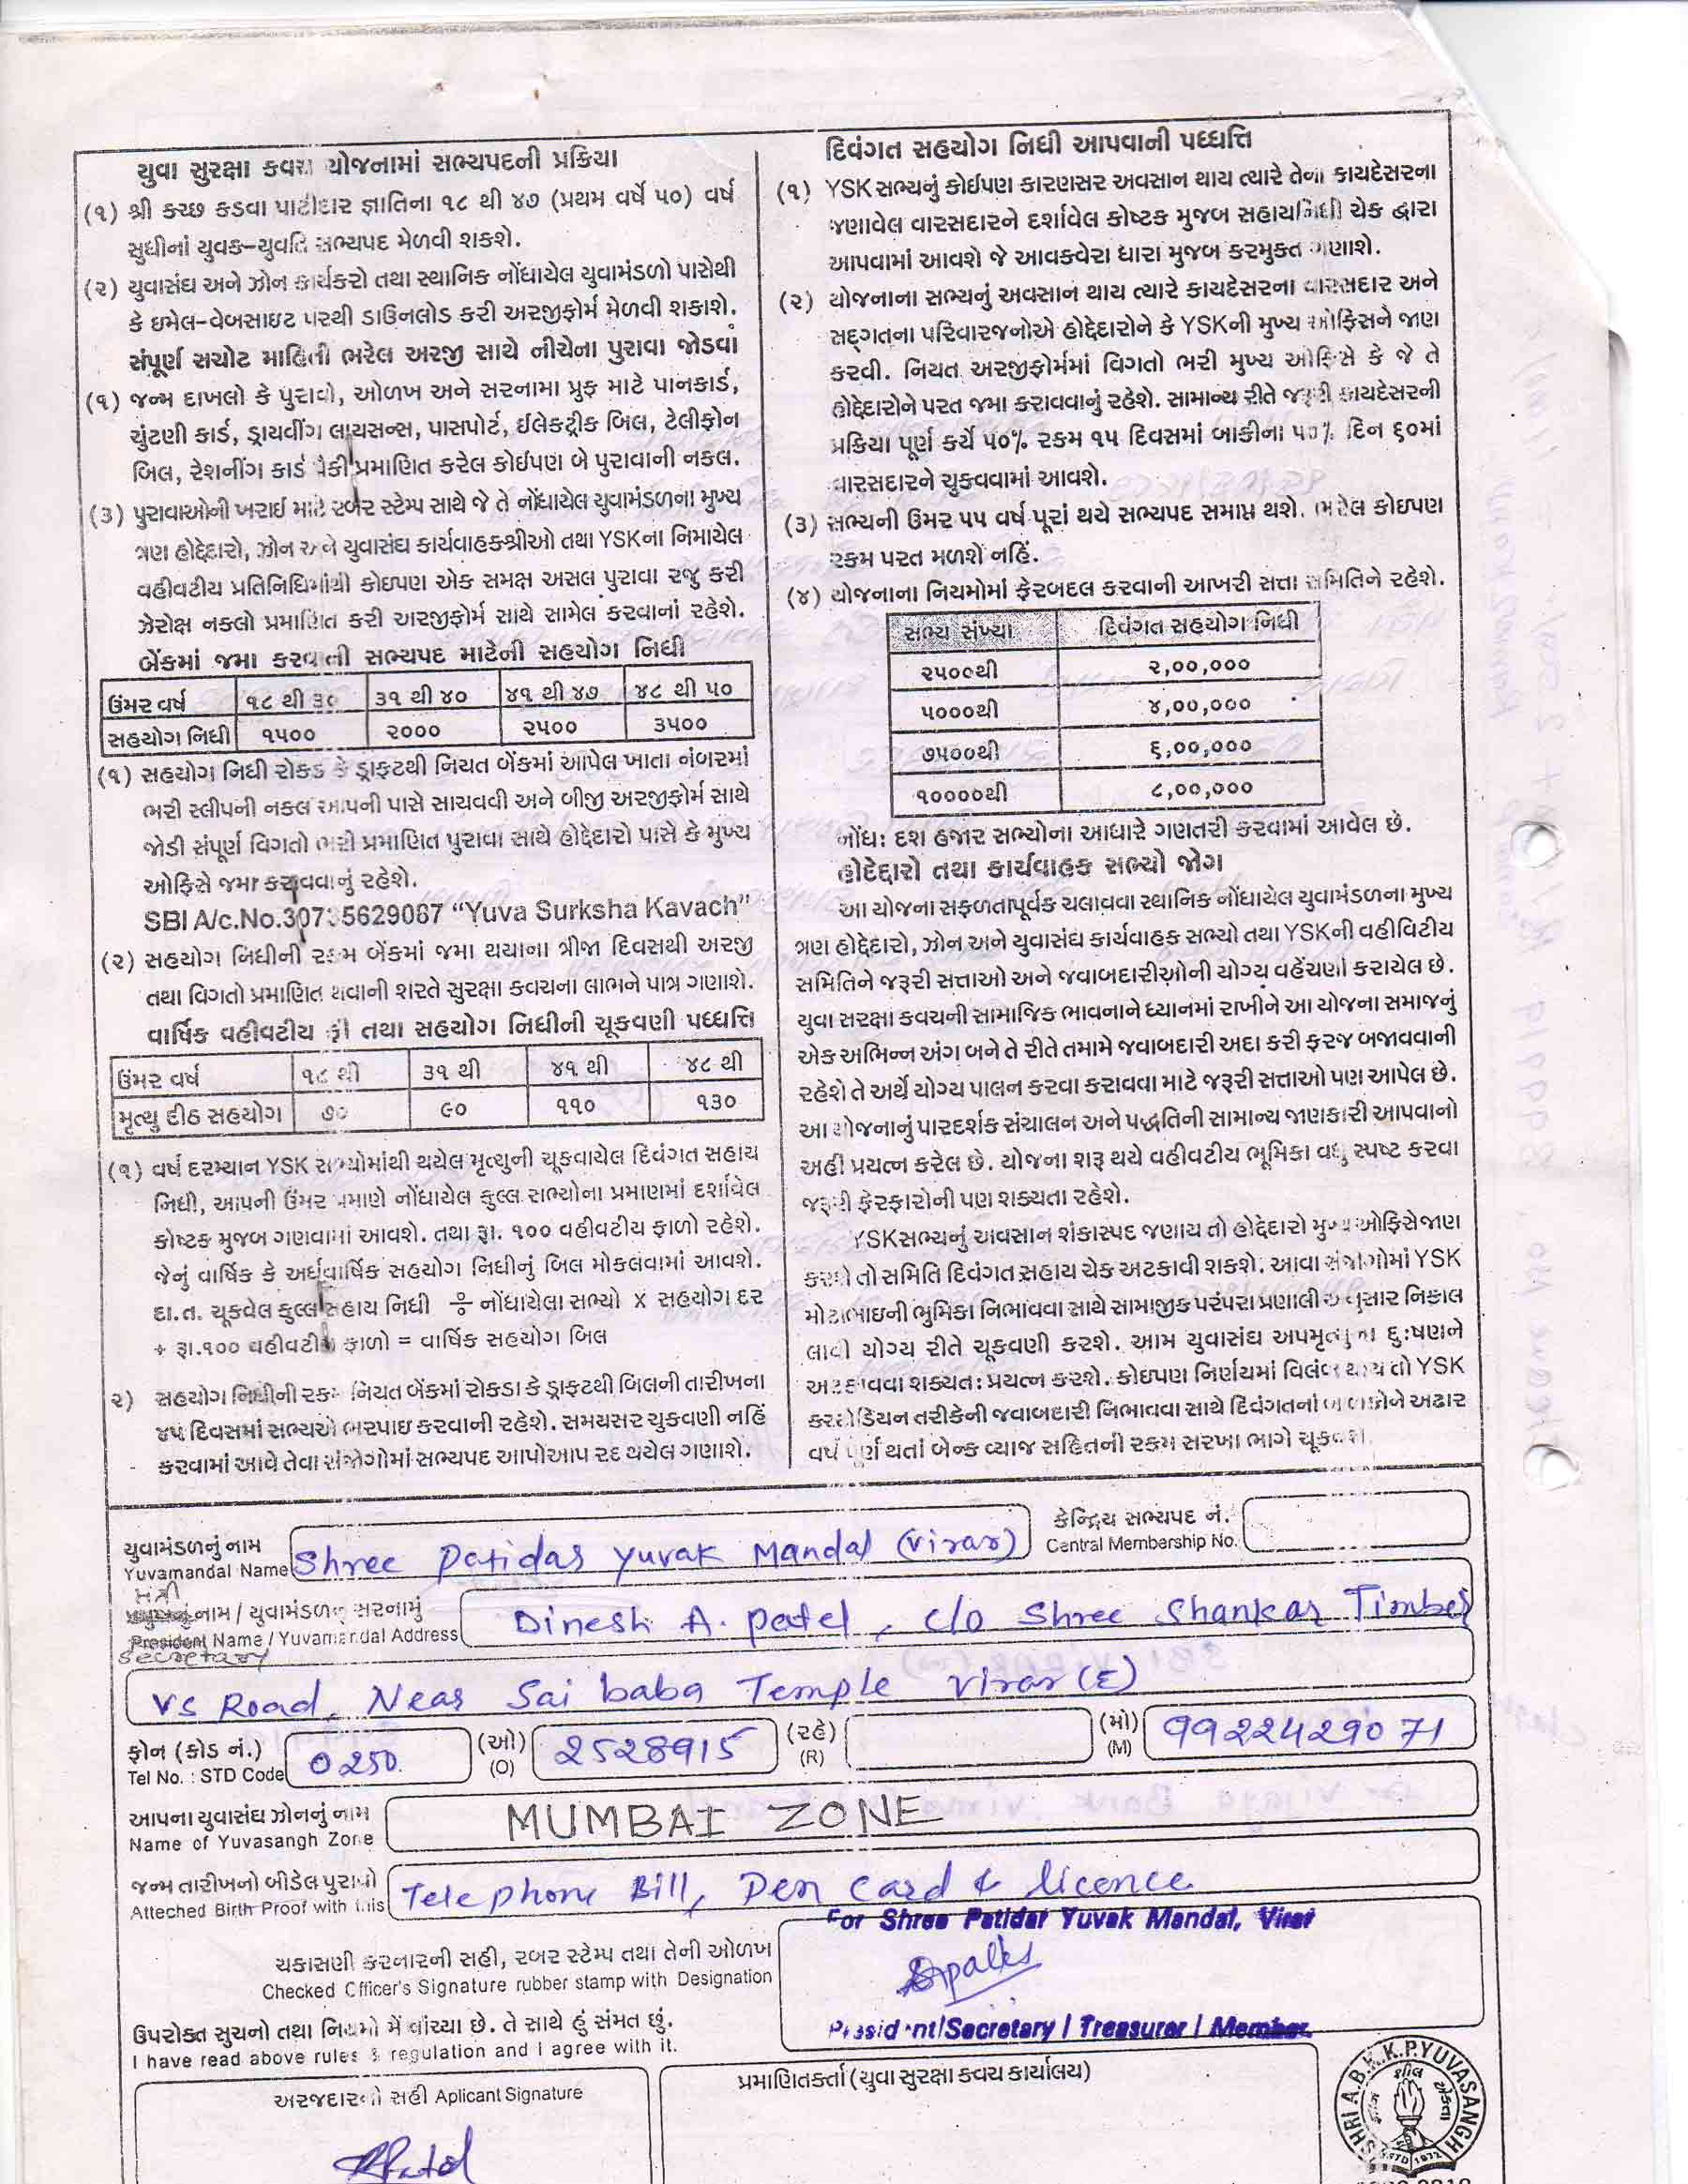 યુવા સુરક્ષા કવચ યોજનામાં સભ્યપદની પ્રક્રિયા
(૧) શ્રી કચ્છ કડવા પાટીદાર જ્ઞાતિના ૧૮ થી ૪૭ (પ્રથમ વર્ષે ૫૦) વર્ષ
સુધીનાં યુવક-યુવતિ સભ્યપદ મેળવી શકશે.
(૨) યુવાસંઘ અને ઝોન કાર્યકરો તથા સ્થાનિક નોંધાયેલ યુવામંડળો પાસેથી
કે ઇમેલ-વેબસાઇટ પરથી ડાઉનલોડ કરી અરજીફોર્મ મેળવી શકાશે.
સંપૂર્ણ સચોટ માહિતી ભરેલ અરજી સાથે નીચેના પુરાવા જોડવાં
(૧) જન્મ દાખલો કે પુરાવો, ઓળખ અને સરનામા પ્રુફ માટે પાનકાર્ડ,
ચુંટણી કાર્ડ, ડ્રાયવીંગ લાયસન્સ, પાસપોર્ટ, ઈલેક્ટ્રીક બિલ, ટેલીફોન
બિલ, રેશનીંગ કાર્ડ પૈકી પ્રમાણિત કરેલ કોઈપણ બે પુરાવાની નકલ.
(૩) પુરાવાઓની ખરાઈ માટે રબર સ્ટેમ્પ સાથે જે તે નોંધાયેલ યુવામંડળના મુખ્ય
ત્રણ હોદ્દેદારો, ઝોન અને યુવાસંઘ કાર્યવાહકશ્રીઓ તથા YSKના નિમાયેલ
વહીવટીય પ્રતિનિધિમાંથી કોઇપણ એક સમક્ષ અસલ પુરાવા રજુ કરી
ઝેરોક્ષ નકલો પ્રમાણિત કરી અરજીફોર્મ સાથે સામેલ કરવાનાં રહેશે.
બેંકમાં જમા કરવાની સભ્યપદ માટેની સહયોગ નિધી
ઉંમર વર્ષ ૧૮ થી ૩૦ ૩૧ થી ૪૦ ૪૧ થી ૪૭ ૪૮ થી ૫૦
સહયોગ નિધી ૧૫૦૦ ૨૦૦૦ ૨૫૦૦ ૩૫૦૦
(૧) સહયોગ નિધી રોકડ કે ડ્રાફટથી નિયત બેંકમાં આપેલ ખાતા નંબરમાં
ભરી સ્લીપની નકલ આપની પાસે સાચવવી અને બીજી અરજીફોર્મ સાથે
જોડી સંપૂર્ણ વિગતો ભરી પ્રમાણિત પુરાવા સાથે હોદ્દેદારો પાસે કે મુખ્ય
ઓફિસે જમા કરાવવાનું રહેશે.
SBI A/c.No.30735629067 “Yuva Surksha Kavach”
(૨) સહયોગ નિધીની રકમ બેંકમાં જમા થયાના ત્રીજા દિવસથી અરજી
તથા વિગતો પ્રમાણિત થવાની શરતે સુરક્ષા કવચના લાભને પાત્ર ગણાશે.
વાર્ષિક વહીવટીય ફી તથા સહયોગ નિધીની ચૂકવણી પધ્ધત્તિ
ઉંમર વર્ષ ૧૮ થી ૩૧ થી ૪૧ થી ૪૮ થી
મૃત્યુ દીઠ સહયોગ ૭૦ ૯૦ ૧૧૦ ૧૩૦
(૧) વર્ષ દરમ્યાન YSK સભ્યોમાંથી થયેલ મૃત્યુની ચૂકવાયેલ દિવંગત સહાય
નિધી, આપની ઉંમર પ્રમાણે નોંધાયેલ કુલ્લ સભ્યોના પ્રમાણમાં દર્શાવેલ
કોષ્ટક મુજબ ગણવામાં આવશે. તથા રૂા. ૧૦૦ વહીવટીય ફાળો રહેશે.
જેનું વાર્ષિક કે અર્ધવાર્ષિક સહયોગ નિધીનું બિલ મોકલવામાં આવશે.
દા.ત. ચૂકવેલ કુલ્લ સહાય નિધી ÷ નોંધાયેલા સભ્યો x સહયોગ દર
+ રૂા.૧૦૦ વહીવટીય ફાળો = વાર્ષિક સહયોગ બિલ
૨) સહયોગ નિધીની રકમ નિયત બેંકમાં રોકડા કે ડ્રાફટથી બિલની તારીખના
૪૫ દિવસમાં સભ્યએ ભરપાઇ કરવાની રહેશે. સમયસર ચુકવણી નહિં
કરવામાં આવે તેવા સંજોગોમાં સભ્યપદ આપોઆપ રદ થયેલ ગણાશે.
દિવંગત સહયોગ નિધી આપવાની પધ્ધત્તિ
(૧) YSK સભ્યનું કોઈપણ કારણસર અવસાન થાય ત્યારે તેના કાયદેસરના
જણાવેલ વારસદારને દર્શાવેલ કોષ્ટક મુજબ સહાયનિધી ચેક દ્વારા
આપવામાં આવશે જે આવકવેરા ધારા મુજબ કરમુક્ત ગણાશે.
(૨) યોજનાના સભ્યનું અવસાન થાય ત્યારે કાયદેસરના વારસદાર અને
સદ્ગતના પરિવારજનોએ હોદ્દેદારોને કે YSKની મુખ્ય ઓફિસને જાણ
કરવી. નિયત અરજીફોર્મમાં વિગતો ભરી મુખ્ય ઓફિસે કે જે તે
હોદ્દેદારોને પરત જમા કરાવવાનું રહેશે. સામાન્ય રીતે જરૂરી કાયદેસરની
પ્રક્રિયા પૂર્ણ કર્યે ૫૦% રકમ ૧૫ દિવસમાં બાકીના ૫૦% દિન ૬૦માં
વારસદારને ચુકવવામાં આવશે.
(૩) સભ્યની ઉંમર ૫૫ વર્ષ પૂરાં થયે સભ્યપદ સમાપ્ત થશે. ભરેલ કોઇપણ
રકમ પરત મળશે નહિં.
(૪) યોજનાના નિયમોમાં ફેરબદલ કરવાની આખરી સત્તા સમિતિને રહેશે.
સભ્ય સંખ્યા દિવંગત સહયોગ નિધી
૨૫૦૦થી ૨,૦૦,૦૦૦
૫૦૦૦થી ૪,૦૦,૦૦૦
૭૫૦૦થી ૬,૦૦,૦૦૦
૧૦૦૦૦થી ૮,૦૦,૦૦૦
નોંધ: દશ હજાર સભ્યોના આધારે ગણતરી કરવામાં આવેલ છે.
હોદેદ્દારો તથા કાર્યવાહક સભ્યો જોગ
આ યોજના સફળતાપૂર્વક ચલાવવા સ્થાનિક નોંધાયેલ યુવામંડળના મુખ્ય
ત્રણ હોદ્દેદારો, ઝોન અને યુવાસંઘ કાર્યવાહક સભ્યો તથા YSKની વહીવિટીય
સમિતિને જરૂરી સત્તાઓ અને જવાબદારીઓની યોગ્ય વહેંચણી કરાયેલ છે.
યુવા સરક્ષા કવચની સામાજિક ભાવનાને ધ્યાનમાં રાખીને આ યોજના સમાજનું
એક અભિન્ન અંગ બને તે રીતે તમામે જવાબદારી અદા કરી ફરજ બજાવવાની
રહેશે તે અર્થે યોગ્ય પાલન કરવા કરાવવા માટે જરૂરી સત્તાઓ પણ આપેલ છે.
આ યોજનાનું પારદર્શક સંચાલન અને પદ્ધતિની સામાન્ય જાણકારી આપવાનો
અહીં પ્રયત્ન કરેલ છે. યોજના શરૂ થયે વહીવટીય ભૂમિકા વધુ સ્પષ્ટ કરવા
જરૂરી ફેરફારોની પણ શક્યતા રહેશે.
YSKસભ્યનું અવસાન શંકાસ્પદ જણાય તો હોદ્દેદારો મુખ્ય ઓફિસે જાણ
કરશે તો સમિતિ દિવંગત સહાય ચેક અટકાવી શકશે. આવા સંજોગોમાં YSK
મોટાભાઇની ભુમિકા નિભાવવા સાથે સામાજીક પરંપરા પ્રણાલી અનુસાર નિકાલ
લાવી યોગ્ય રીતે ચૂકવણી કરશે. આમ યુવાસંઘ અપમૃત્યુના દુઃષણને
અટકાવવા શક્યતઃ પ્રયત્ન કરશે. કોઇપણ નિર્ણયમાં વિલંબ થાય તો YSK
કસ્ટોડિયન તરીકેની જવાબદારી નિભાવવા સાથે દિવંગતનાં બાળકોને અઢાર
વર્ષ પૂર્ણ થતાં બેન્ક વ્યાજ સહિતની રકમ સરખા ભાગે ચૂકવશે.
યુવામંડળનું નામ
Yuvamandal Name Shree Patidar Yuvak Mandal (Virar)
કેન્દ્રિય સભ્યપદ નં.
Central Membership No.
મંત્રી
નામ / યુવામંડળનું સરનામું
President Name / Yuvamandal Address Dinesh A. Patel, c/o Shree Shankar Timber
Secretary
VS Road, Near Sai baba Temple Virar (E)
ફોન (કોડ નં.) (ઓ) (રહે) (મો)
Tel No. : STD Code 0250 (O) 2528915 (R) (M) 9922429071
આપના યુવાસંઘ ઝોનનું નામ
Name of Yuvasangh Zone MUMBAI ZONE
જન્મ તારીખનો બીડેલ પુરાવો
Atteched Birth Proof with this Telephone Bill, Pen Card & licence
For Shree Patidar Yuvak Mandal, Virar
ચકાસણી કરનારની સહી, રબર સ્ટેમ્પ તથા તેની ઓળખ
Checked Officer's Signature rubber stamp with Designation
President/Secretary / Treasurer / Member
ઉપરોક્ત સુચનો તથા નિયમો મેં વાંચ્યા છે. તે સાથે હું સંમત છું.
I have read above rules & regulation and I agree with it.
અરજદારની સહી Aplicant Signature
પ્રમાણિતકર્તા (યુવા સુરક્ષા કવચ કાર્યાલય)
SHRI A.B.K.K.P.YUVASANGH